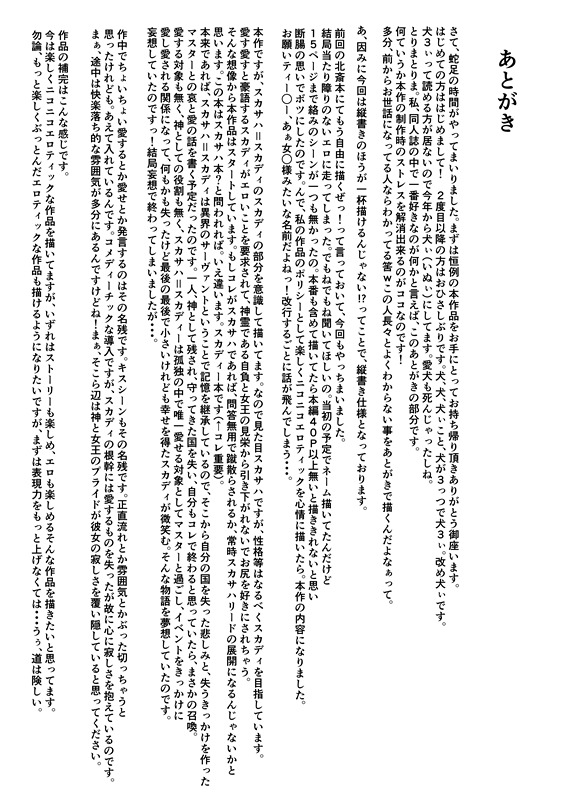 あとがき
さて、蛇足の時間がやってまいりました。まずは恒例の本作品をお手にとってお持ち帰り頂きありがとう御座います。
はじめての方ははじめまして!　2度目以降の方はおひさしぶりです。犬、犬、犬ぃこと、犬が3っつで犬3ぃ。改め犬ぃです。
犬3ぃって読める方が居ないので今年から犬ぃ(いぬぃ)にしてます。愛犬も死んじゃったしね。
とりまとりま。私、同人誌の中で一番好きなのが何かと言えば、このあとがきの部分です。
何ていうか本作の制作時のストレスを解消出来るのがココなのです!
多分、前からお世話になってる人ならわかってる筈wこの人長々とよくわからない事をあとがきで描くんだよなぁって。
あ、因みに今回は縦書きのほうが一杯描けるんじゃない!?ってことで、縦書き仕様となっております。
前回の北斎本にてもう自由に描くぜっ!って言っておいて、今回もやっちまいました。
結局当たり障りのないエロに走ってしまった。でもねでもね聞いてほしいの。当初の予定でネーム描いてたんだけど
15ページまで絡みのシーンが一つも無かったの。本番も含めて描いてたら本編40P以上無いと描ききれないと思い
断腸の思いでボツにしたのです。んで、私の作品のポリシーとして楽しくニコニコエロティックを心情に描いたら。本作の内容になりました。
お願いティー〇ー、あぁ女〇様みたいな名前だよねっ!改行するごとに話が飛んでしまう・・・。
本作ですが、スカサハ=スカディのスカディの部分を意識して描いてます。なので見た目スカサハですが、性格等はなるべくスカディを目指しています。
愛す愛すと豪語するスカディがエロいことを要求されて、神霊である自負と女王の見栄から引き下がれないでお尻を好きにされちゃう。
そんな想像から本作品はスタートしています。もしコレがスカサハであれば、問答無用で蹴散らされるか、常時スカサハリードの展開になるんじゃないかと
思います。この本はスカサハ本?と問われれば。いえ違います。スカディー本です(↑コレ重要)。
本来であれば、スカサハ=スカディは異界のサーヴァントということで記憶を継承しているので、そこから自分の国を失った悲しみと、失うきっかけを作った
マスターとの哀と愛の話を書く予定だったのです。一人、神として残され、守ってきた国を失い、自分もコレで終わると思っていたら、まさかの召喚。
愛する対象も無く、神としての役割も無く、スカサハ=スカディーは孤独の中で唯一愛せる対象としてマスターと過ごし、イベントをきっかけに
愛し愛される関係になって、何もかも失ったけど最後の最後で小さいけれども幸せを得たスカディが微笑む。そんな物語を夢想していたのです。
妄想していたのですっ!結局妄想で終わってしまいましたが・・・。
作中でちょいちょい愛するとか愛せとか発言するのはその名残です。キスシーンもその名残です。正直流れとか雰囲気とかぶった切っちゃうと
思ったけれども。あえて入れているんです。コメディーチックな導入ですが、スカディの根幹には愛するものを失ったが故に心に寂しさを抱えているのです。
まぁ、途中は快楽落ち的な雰囲気が多分にあるんですけどね!まぁ、そこら辺は神と女王のプライドが彼女の寂しさを覆い隠していると思ってください。
作品の補完はこんな感じです。
今は楽しくニコニコエロティックな作品を描いてますが、いずれはストーリーも楽しめ、エロも楽しめるそんな作品を描きたいと思ってます。
勿論、もっと楽しくぶっとんだエロティックな作品も描けるようになりたいですが、まずは表現力をもっと上げなくては・・・うぅ、道は険しい。